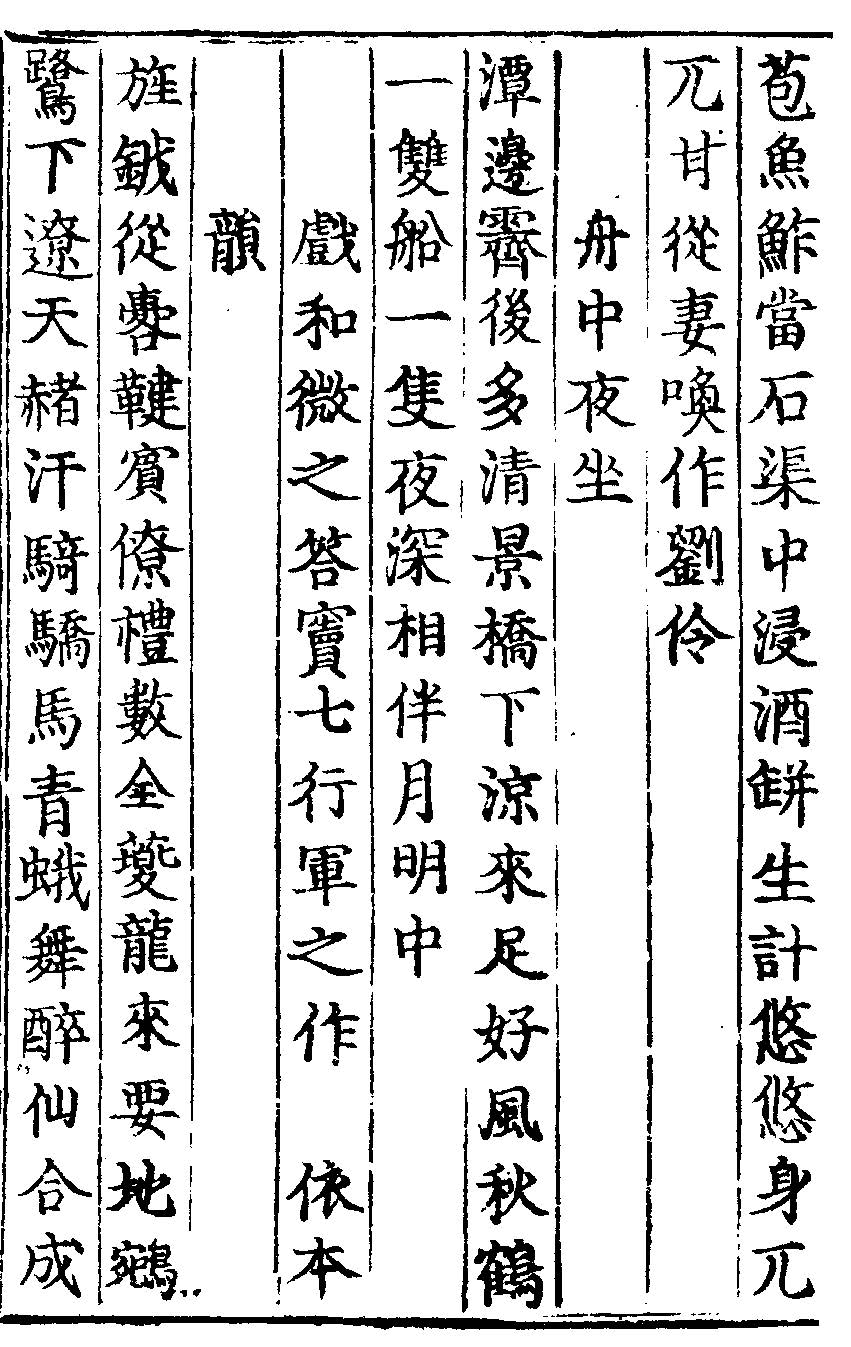 苞魚鮓當石渠中浸酒缾生計悠悠身兀
兀甘從妻喚作劉伶
舟中夜坐
潭邊霽後多清景橋下涼來足好風秋鶴
一雙船一隻夜深相伴月明中
戲和微之答竇七行軍之作 依本
韻
旌鉞從櫜鞬賓僚禮數全夔龍來要地鵷
鷺下遼天赭汗騎驕馬青蛾舞醉仙合成